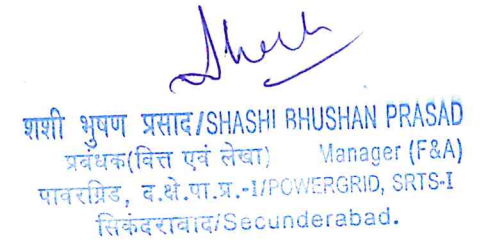 शशी भुषण प्रसाद/SHASHI BHUSHAN PRASAD
प्रबंधक(वित्त एवं लेखा) Manager (F&A)
पावरग्रिड, द.क्षे.पा.प्र.-I/POWERGRID, SRTS-I
सिकंदराबाद/Secunderabad.